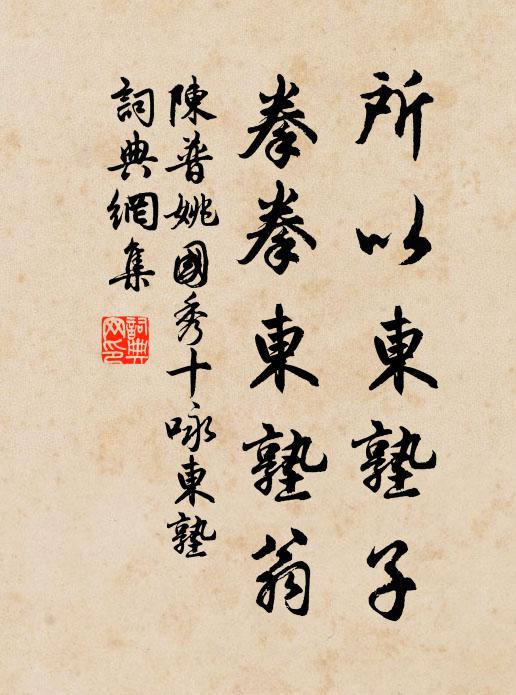 所以東塾子
拳拳東塾翁
陳普姚國秀十咏東塾
詞典網集
詞典網印